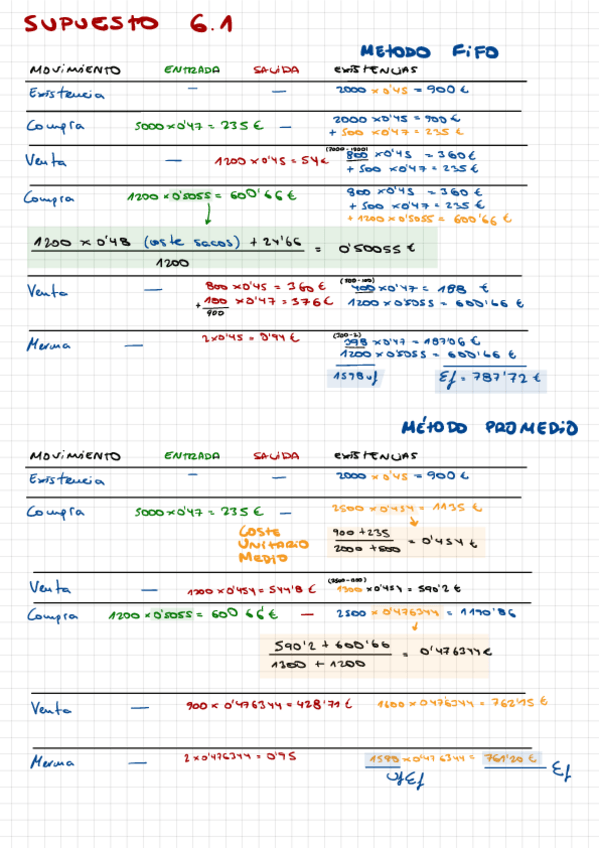 SUPUESTO 6.1
METODO FIFO
MOVIMIENTO ENTRADA SALIDA EXISTENCIAS
Existencia — — 2000 × 0'45 = 900 €
Compra 5000 × 0'47 = 235 € — 2000 × 0'45 = 900 €
+ 500 × 0'47 = 235 €
Venta — 1200 × 0'45 = 54 € 800 × 0'45 = 360 €
+ 500 × 0'47 = 235 €
Compra 1200 × 0'5055 = 600'66 € 800 × 0'45 = 360 €
+ 500 × 0'47 = 235 €
+ 1200 × 0'5055 = 600'66 €
1200 × 0'48 (coste sacos) + 24'66 = 0'50055 €
1200
Venta — 800 × 0'45 = 360 € (500-100) 400 × 0'47 = 188 €
+ 100 × 0'47 = 376 € 1200 × 0'5055 = 600'66 €
900
Merma — 2 × 0'45 = 0'94 € (500-2) 398 × 0'47 = 187'06 €
1200 × 0'5055 = 600'66 €
1598 uf Ef = 787'72 €
MÉTODO PROMEDIO
MOVIMIENTO ENTRADA SALIDA EXISTENCIAS
Existencia — — 2000 × 0'45 = 900 €
Compra 5000 × 0'47 = 235 € — 2500 × 0'454 = 1135 €
COSTE UNITARIO MEDIO
900 + 235 = 0'454 €
2000 + 500
Venta — 1200 × 0'454 = 544'8 € 1300 × 0'454 = 590'2 €
Compra 1200 × 0'5055 = 600'66 € — 2500 × 0'476344 = 1190'86
590'2 + 600'66 = 0'476344 €
1300 + 1200
Venta — 900 × 0'476344 = 428'71 € 1600 × 0'476344 = 762'15 €
Merma — 2 × 0'476344 = 0'95 1598 × 0'476344 = 761'20 €
Ef